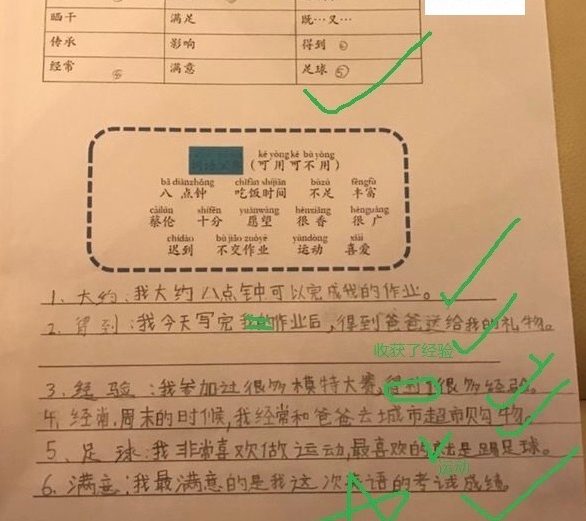 晒干 满足 既…又…
传承 影响 得到 ②
经常 ④ 满意 足球 ⑤
kě yòng kě bù yòng
（可用可不用）
bā diǎnzhōng chīfàn shíjiān bùzú fēngfù
八点钟 吃饭时间 不足 丰富
càilún shífēn yuànwàng hěnxiāng hěnguǎng
蔡伦 十分 愿望 很香 很广
chídào bù jiāo zuòyè yùndòng xǐài
迟到 不交作业 运动 喜爱
1. 大约：我大约八点钟可以完成我的作业。
2. 得到：我今天写完我的作业后，得到爸爸送给我的礼物。
收获了经验
3. 经验：我参加过很多模特大赛，得到了很多经验。
4. 经常：周末的时候，我经常和爸爸去城市超市购物。
5. 足球：我非常喜欢做运动，最喜欢的就是踢足球。
运动
6. 满意：我最满意的是我这次英语的考试成绩。